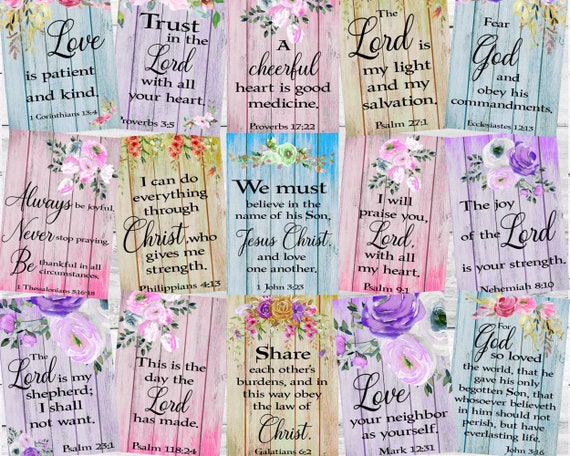 Love
is patient
and kind.
1 Corinthians 13:4
Trust
in the
Lord
with all
your heart.
Proverbs 3:5
A
cheerful
heart is good
medicine.
Proverbs 17:22
The
Lord is
my light
and my
salvation.
Psalm 27:1
Fear
God
and
obey his
commandments.
Ecclesiastes 12:13
Always be joyful.
Never stop praying.
Be thankful in all
circumstances.
1 Thessalonians 5:16-18
I can do
everything
through
Christ, who
gives me
strength.
Philippians 4:13
We must
believe in the
name of his Son,
Jesus Christ,
and love
one another.
1 John 3:23
I will
praise you,
Lord,
with all
my heart.
Psalm 9:1
The joy
of the Lord
is your strength.
Nehemiah 8:10
The
Lord is my
shepherd;
I shall
not want.
Psalm 23:1
This is the
day the
Lord
has made.
Psalm 118:24
Share
each other's
burdens, and in
this way obey
the law of
Christ.
Galatians 6:2
Love
your neighbor
as yourself.
Mark 12:31
For
God
so loved
the world, that he
gave his only
begotten Son, that
whosoever believeth
in him should not
perish, but have
everlasting life.
John 3:16